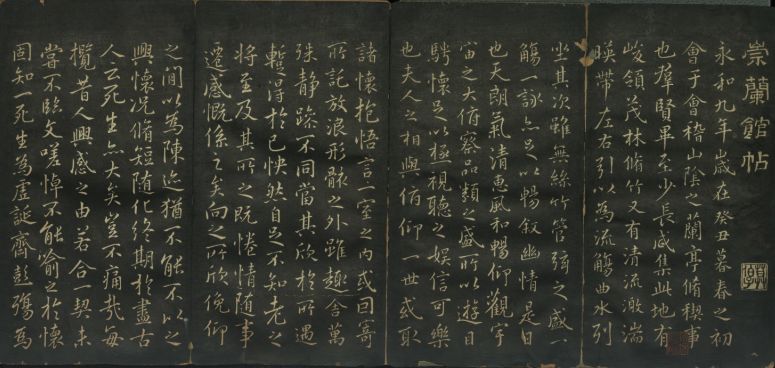 崇蘭館帖
永和九年歲在癸丑暮春之初
會于會稽山陰之蘭亭脩稧事
也羣賢畢至少長咸集此地有
峻領茂林脩竹又有清流激湍
暎帶左右引以為流觴曲水列
坐其次雖無絲竹管弦之盛一
觴一詠亦足以暢叙幽情是日
也天朗氣清惠風和暢仰觀宇
宙之大俯察品類之盛所以遊目
騁懷足以極視聽之娛信可樂
也夫人之相與俯仰一世或取
諸懷抱悟言一室之內或因寄
所託放浪形骸之外雖趣舍萬
殊静躁不同當其欣於所遇
蹔得於己怏然自足不知老之
將至及其所之既惓情隨事
遷感慨係之矣向之所欣俛仰
之間以為陳迹猶不能不以之
興懷況脩短隨化終期於盡古
人云死生亦大矣豈不痛哉每
攬昔人興感之由若合一契未
嘗不臨文嗟悼不能喻之於懷
固知一死生為虛誕齊彭殤為